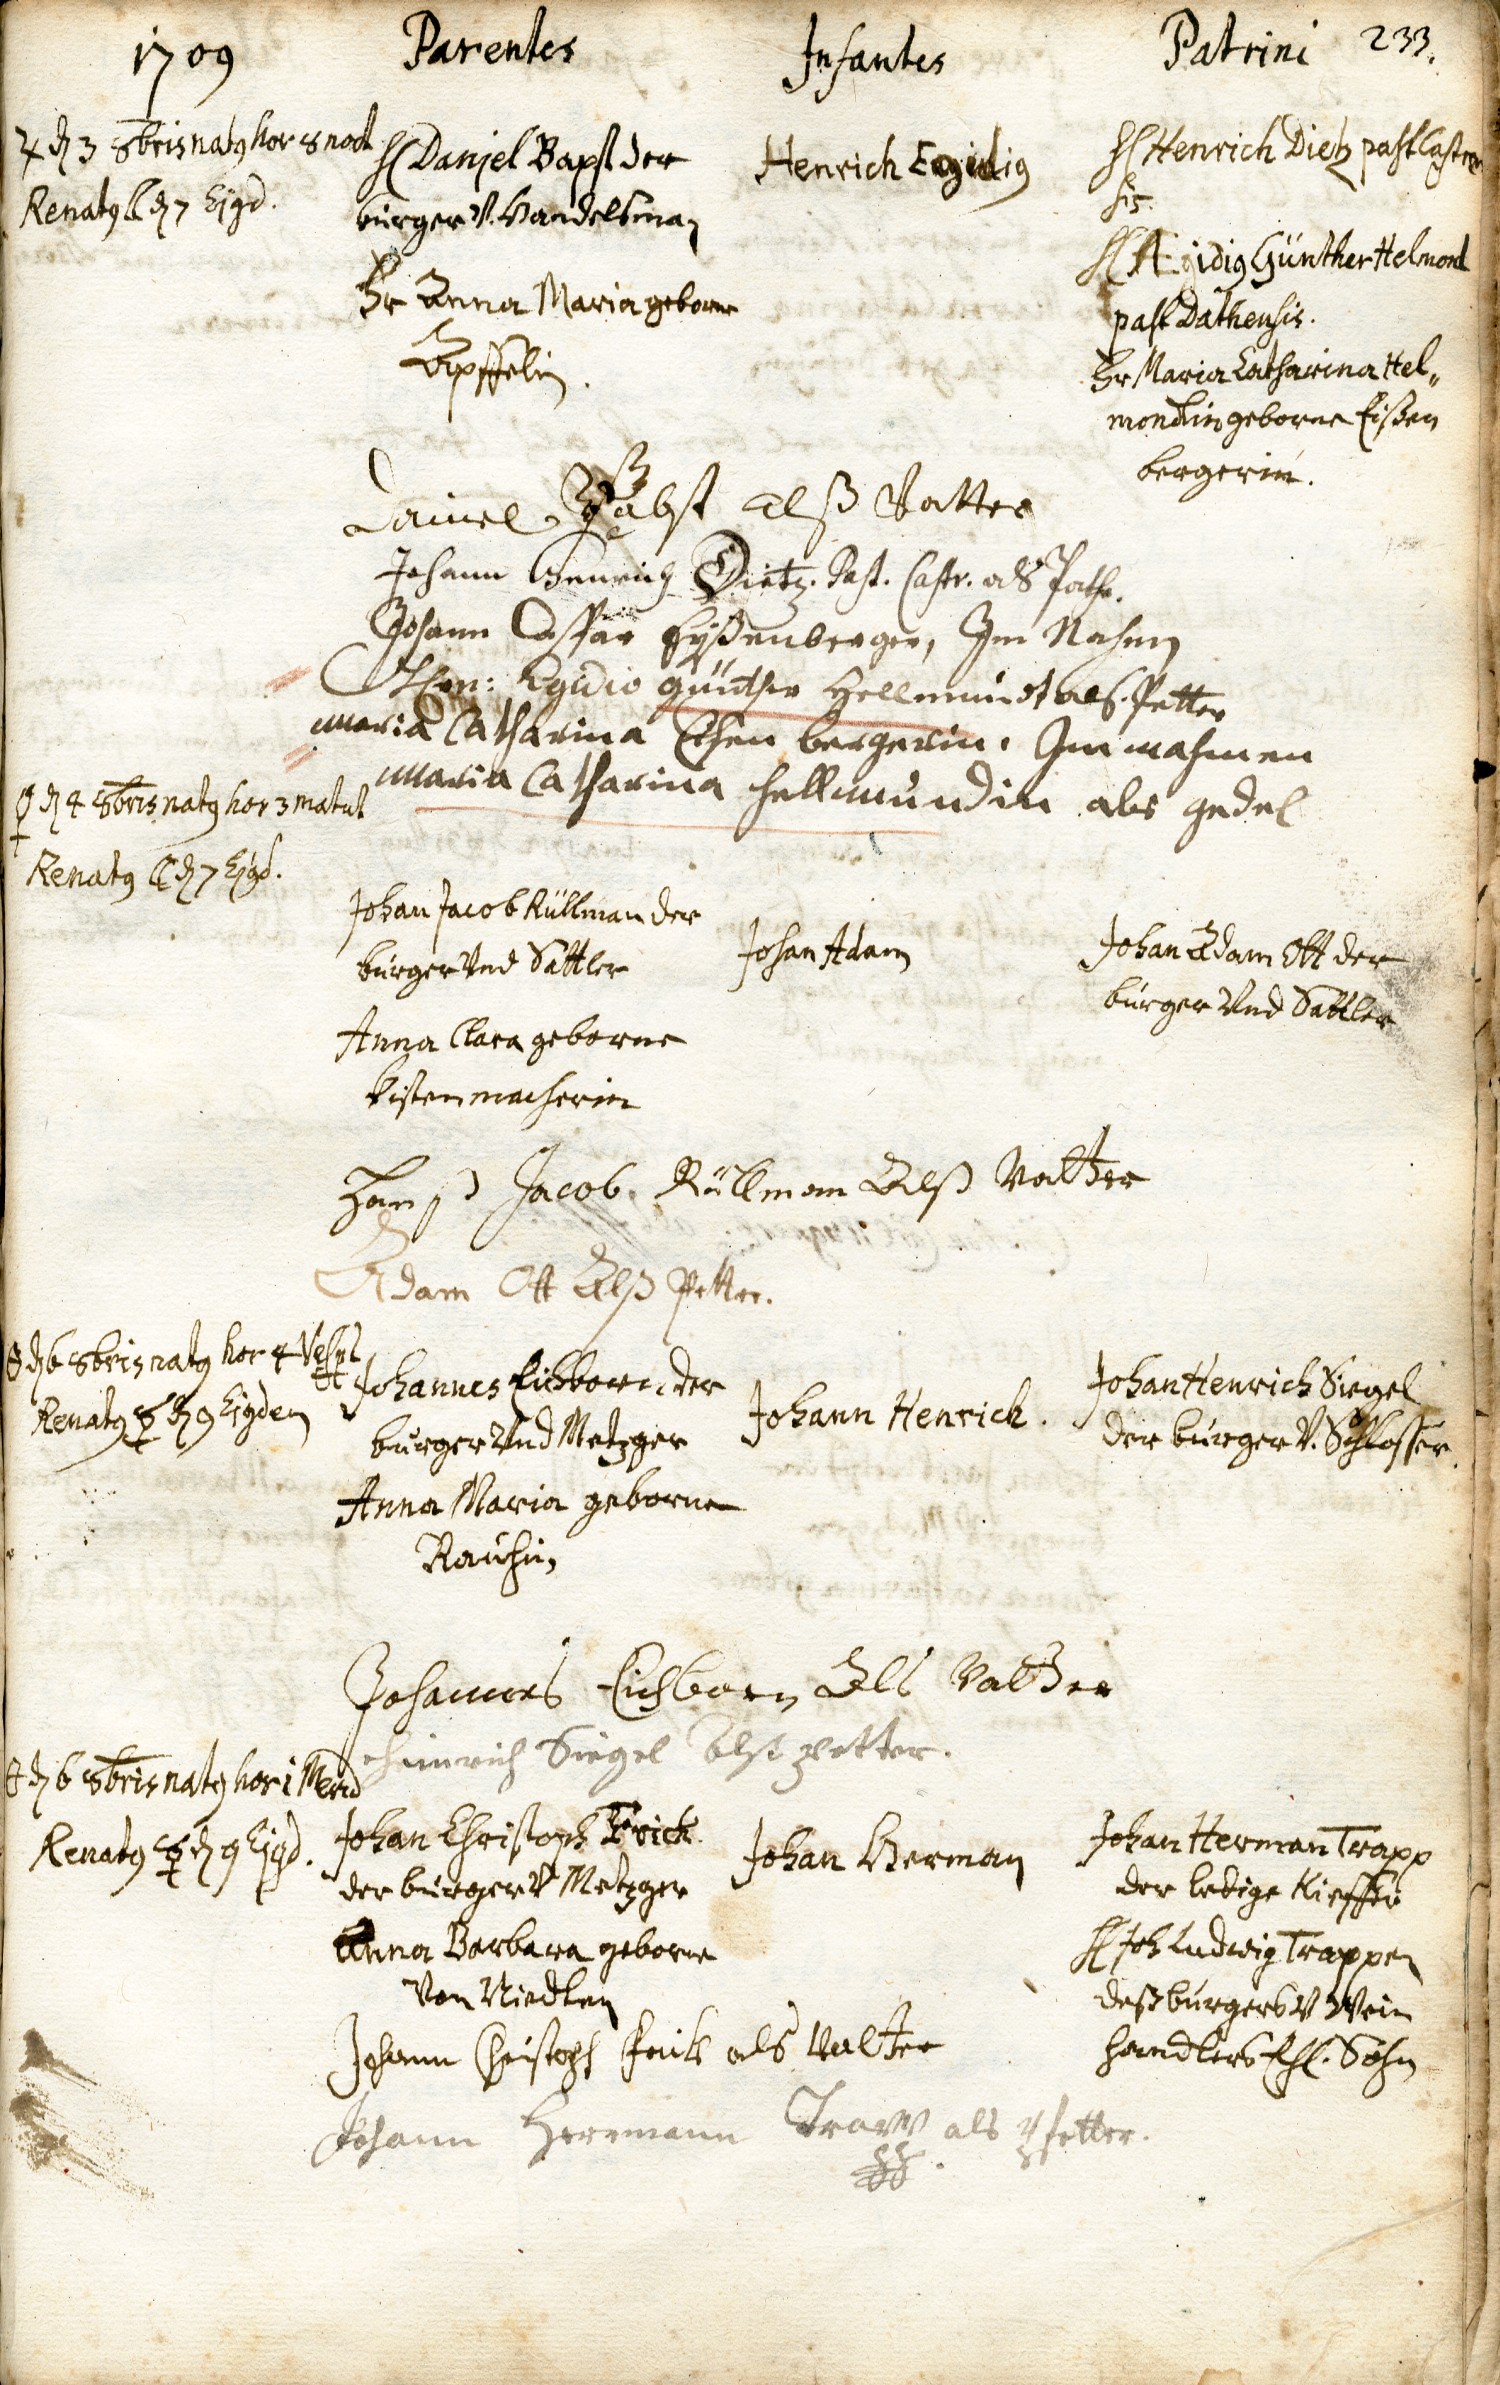 1709 Parentes Infantes Patrini 233.
♃ d 3 8bris natus hor 8 noct
Renatus ☾ d 7 Ejusd.
H Daniel Bapst der
bürger V. Handelsman
Fr Anna Maria geborne
Äpffelin.
Henrich Egidius
H Henrich Dietz past Castren
sis.
H Ægidius Günther Helmond
past Dathensis.
Fr Maria Catharina Hel„
mondtin geborne Eißen
bergerin.
Daniel Pabst alß Vatter
Johann Henrich Dietz. Past. Castr. als Pathe.
Johann Caspar Eyßenberger, Im Nahmen
Hrn: Egidio Günther Hellmundt als Petter
Maria Catharina Eisen bergerin. Im nahmen
Maria Catharina Hellmundin als gedel
♀ d 4 8bris natus hor 3 matut
Renatus ☾ d 7 Ejusd.
Johan Jacob Rüllman der
bürger Und Sattler
Anna Clara geborne
Kistenmacherin
Johan Adam
Johan Adam Ott der
bürger Und Sattler
Hanß Jacob Rüllman Alß Vatter
Adam Ott Alß Petter.
d 6 8bris natus hor 4 Vesp
Renatus ☿ d 9 Ejusdem
Johannes Eichborn der
bürger Und Metzger
Anna Maria geborne
Rauhin
Johann Henrich.
Johan Henrich Siegel
der bürger V. Schlosser.
Johannes Eichborn Als Vatter
Heinrich Siegel Alst petter.
d 6 8bris natus hor 1 Merid
Renatus ☿ d 9 Ejusd.
Johan Christoph Frick
der bürger V Metzger
Anna Barbara geborne
Von Niedten
Johan Herman
Johan Herman Trapp
der ledige Kieffer
H Joh Ludwig Trappen
deß bürgers V Wein
handlers Ehl. Sohn
Johann Christoph Frick als Vatter
Johann Herrmann Trapp als Pfetter.